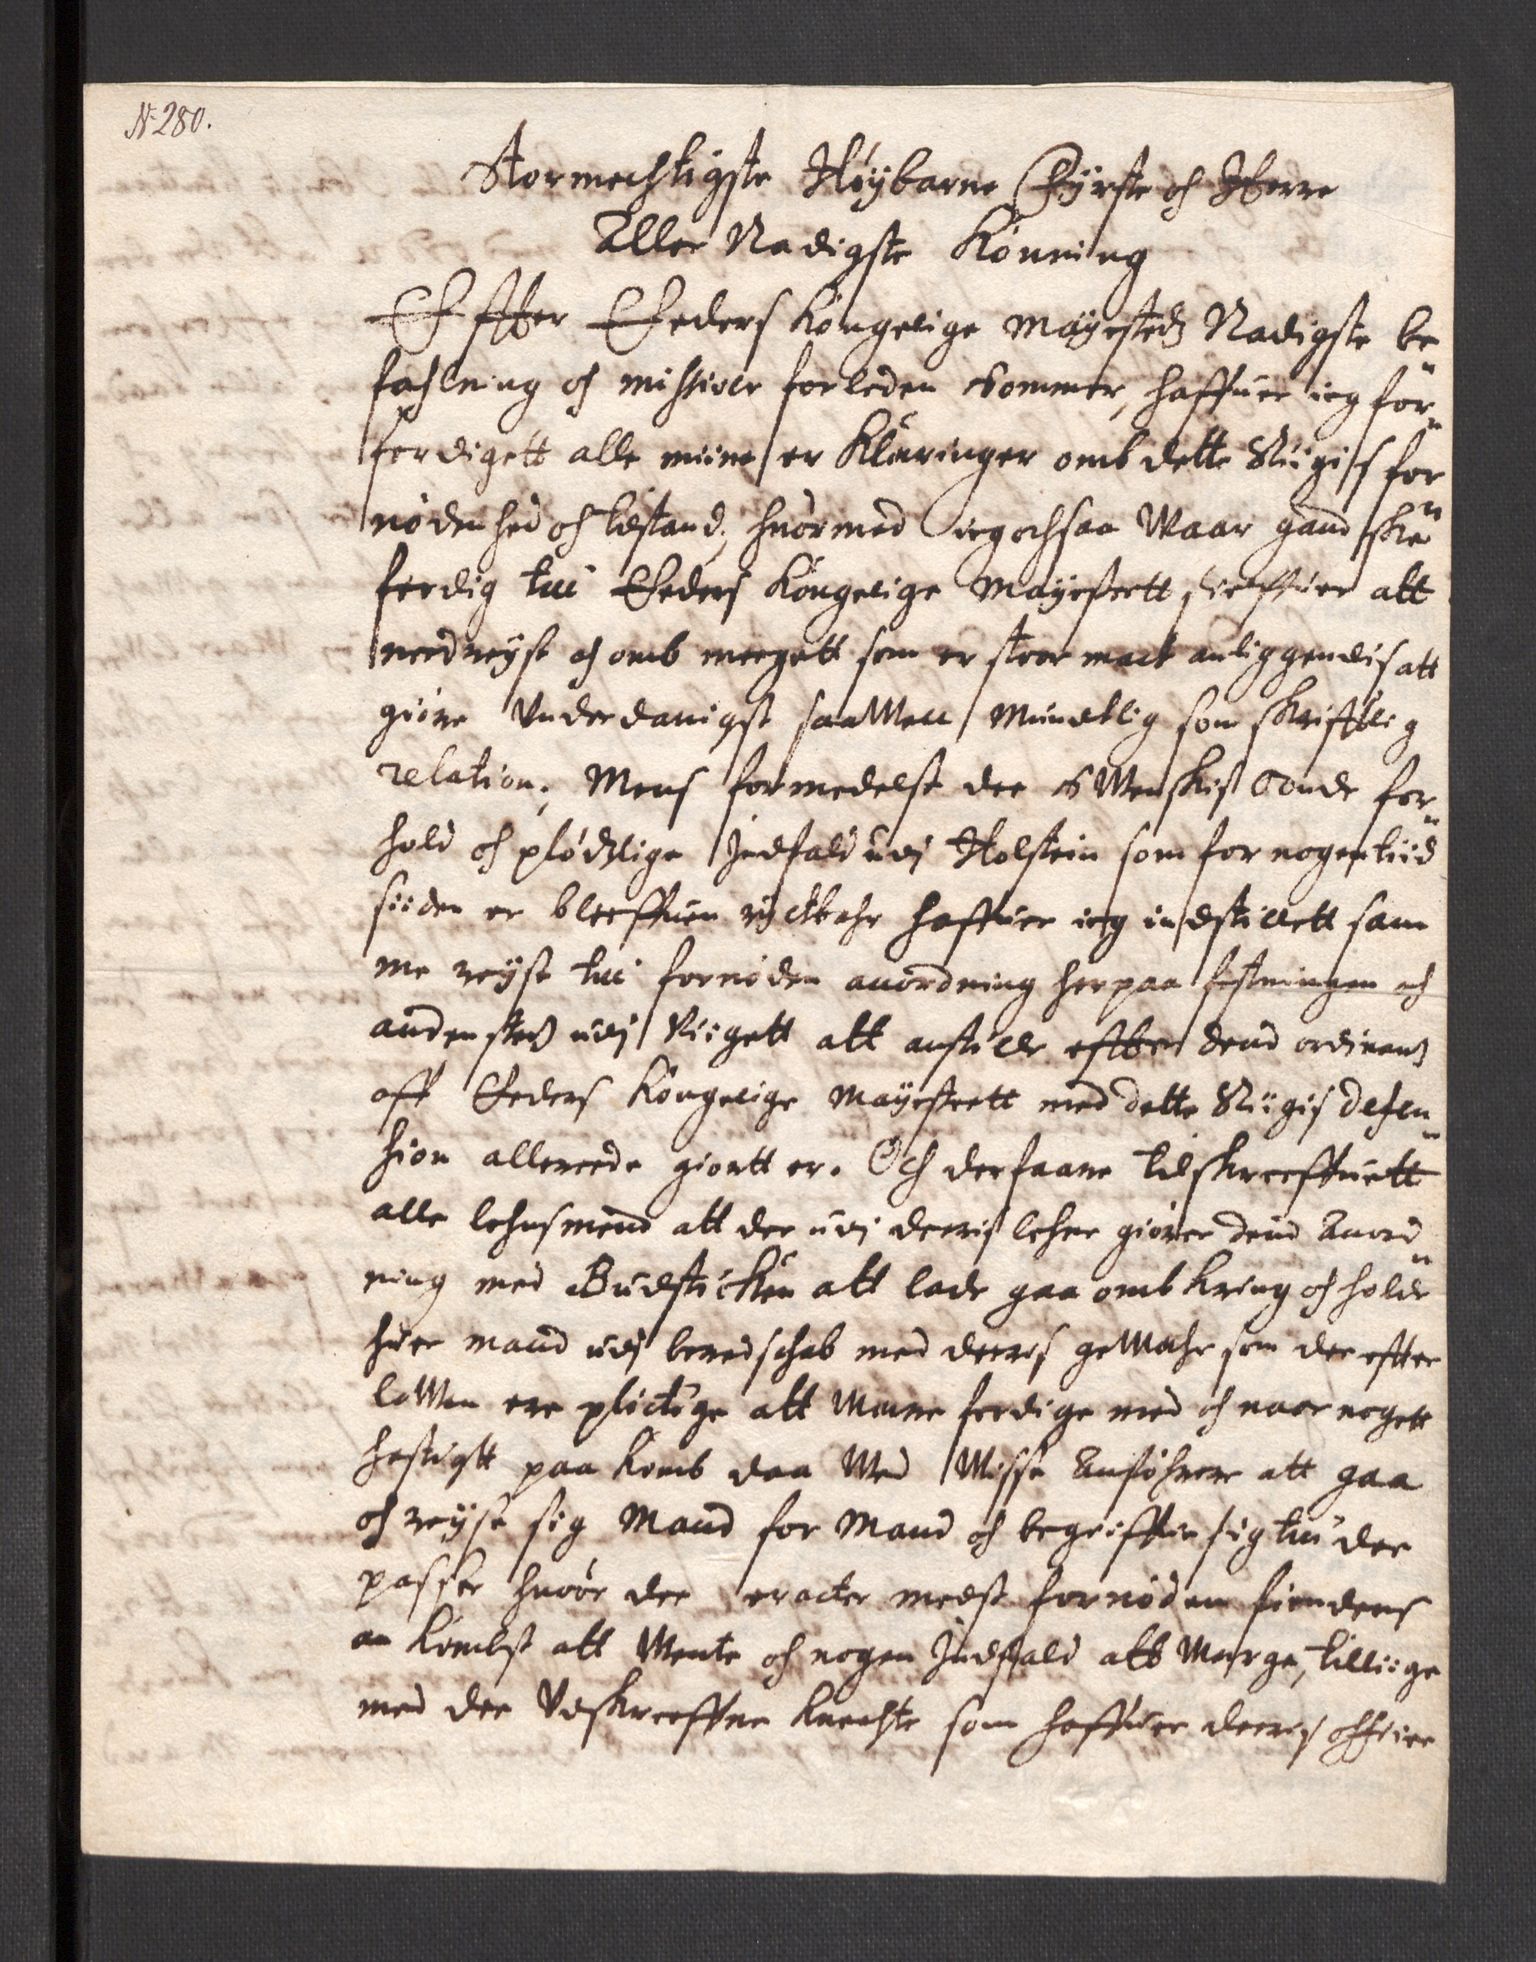 N. 280.
Stormechtigste Høybarne Fyrste och Herre
Aller Nadigste Konning
Effter Eeders Kongelige Mayesteds Nadigste be„
fahlning och missiver forleden Sommer, haffuer ieg for„
ferdigett alle miine er Kleringer omb dette Riigis for„
nødenhed och tilstand, huormed ieg ochsaa Waar gand„ ske
ferdig till Eeders Kongelige Mayestett sielffuer att
needreyse och omb meegett som er stoor mact anliggendis att
giøre Underdanigst saaWell Mundtlig som skrifftlig
relation, Mens formedelst dee SWenskis Onde for„
hold och plødtzlige Indfald udj Holstein som for nogen tiid
siiden er bleeffuen ryctbahr haffuer ieg indstillett sam
me reyse till fornøden anordning her paa festningen och
andensteds udj Riigett att anstille effter dend ordinantz
aff Eeders Kongelige Mayestett med dette Riigis defen„
sion allereede giortt er. Och derfaare tilskreeffuett
alle lehnsmend att dee udj deeris lehne giører dend Anord„
ning med Budsticken att lade gaa omb Kring och holde
huer mand udj beredschab med deeris geWehr som dee effter
loWen ere plictige att Were ferdige med och naar nogett
hastigtt paa Komb daa Wed Wisse Anføhrere att gaa
och reyse sig Mand for Mand och begriffue sig till dee
passer huor dee eracter meest fornøden fiendens
an Kombst att Wente och nogen Indfald att Werge, tilliige
med dee Udskreeffne Knechte som haffuer deeris officier